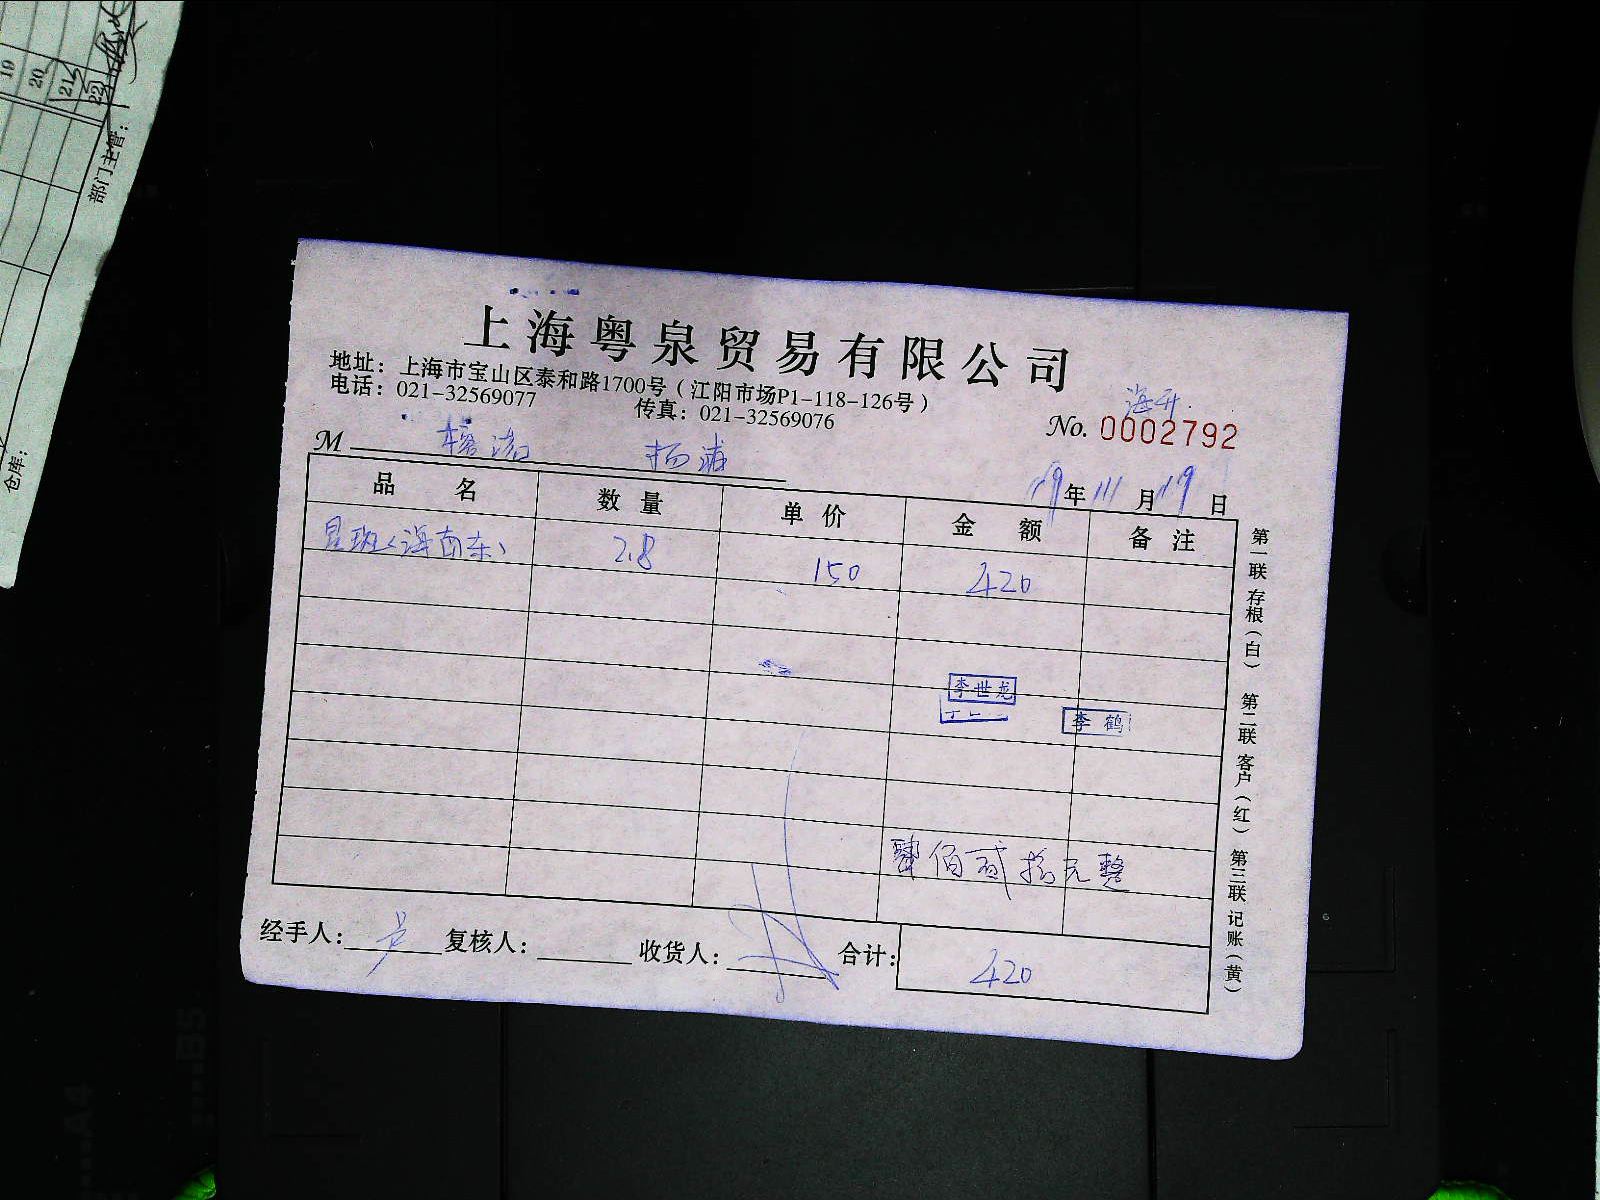 19
20
21
22
部门主管：
仓库：
上海粤泉贸易有限公司
地址：上海市宝山区泰和路1700号（江阳市场P1-118-126号）
电话：021-32569077 传真：021-32569076
No. 0002792
M 杨浦
19年 11月 19日
品名 数量 单价 金额 备注
星斑（海南东） 2.8 150 420
李世龙
李鹤
肆佰贰拾元整
经手人： 复核人： 收货人： 合计：420
第一联 存根（白） 第二联 客户（红） 第三联 记账（黄）
B5
A4